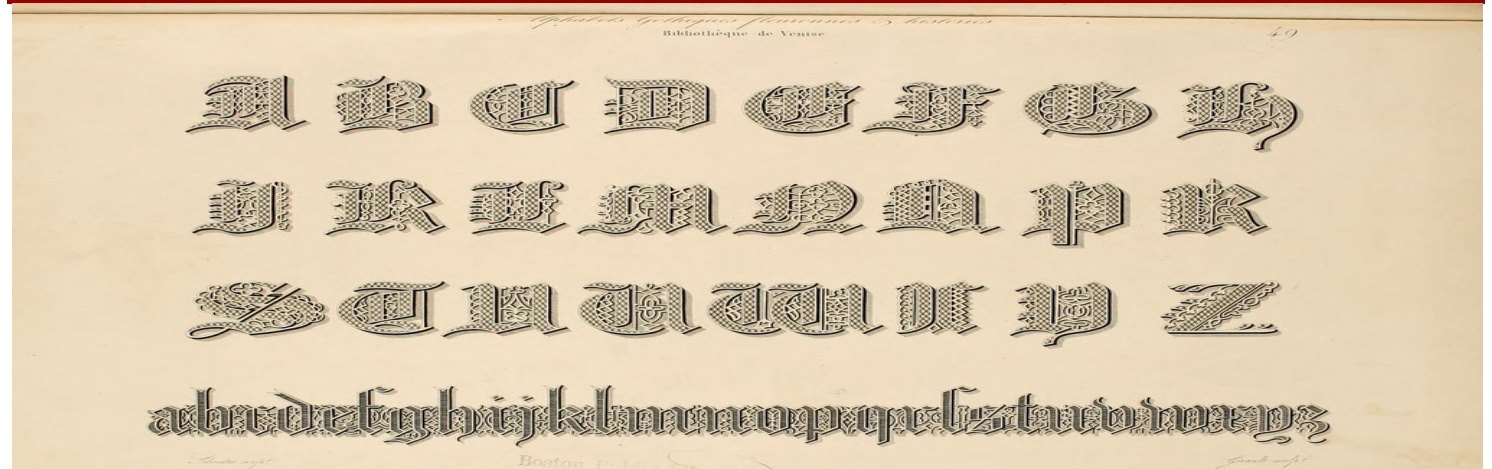 Alphabets Gothiques fleuronnés & historiés
Bibliothèque de Venise 49
A B C D E F G H
I K L M N P R
S T U V W X Y Z
abcdefghijklmnopqrſstuvwxyz
Boston Public